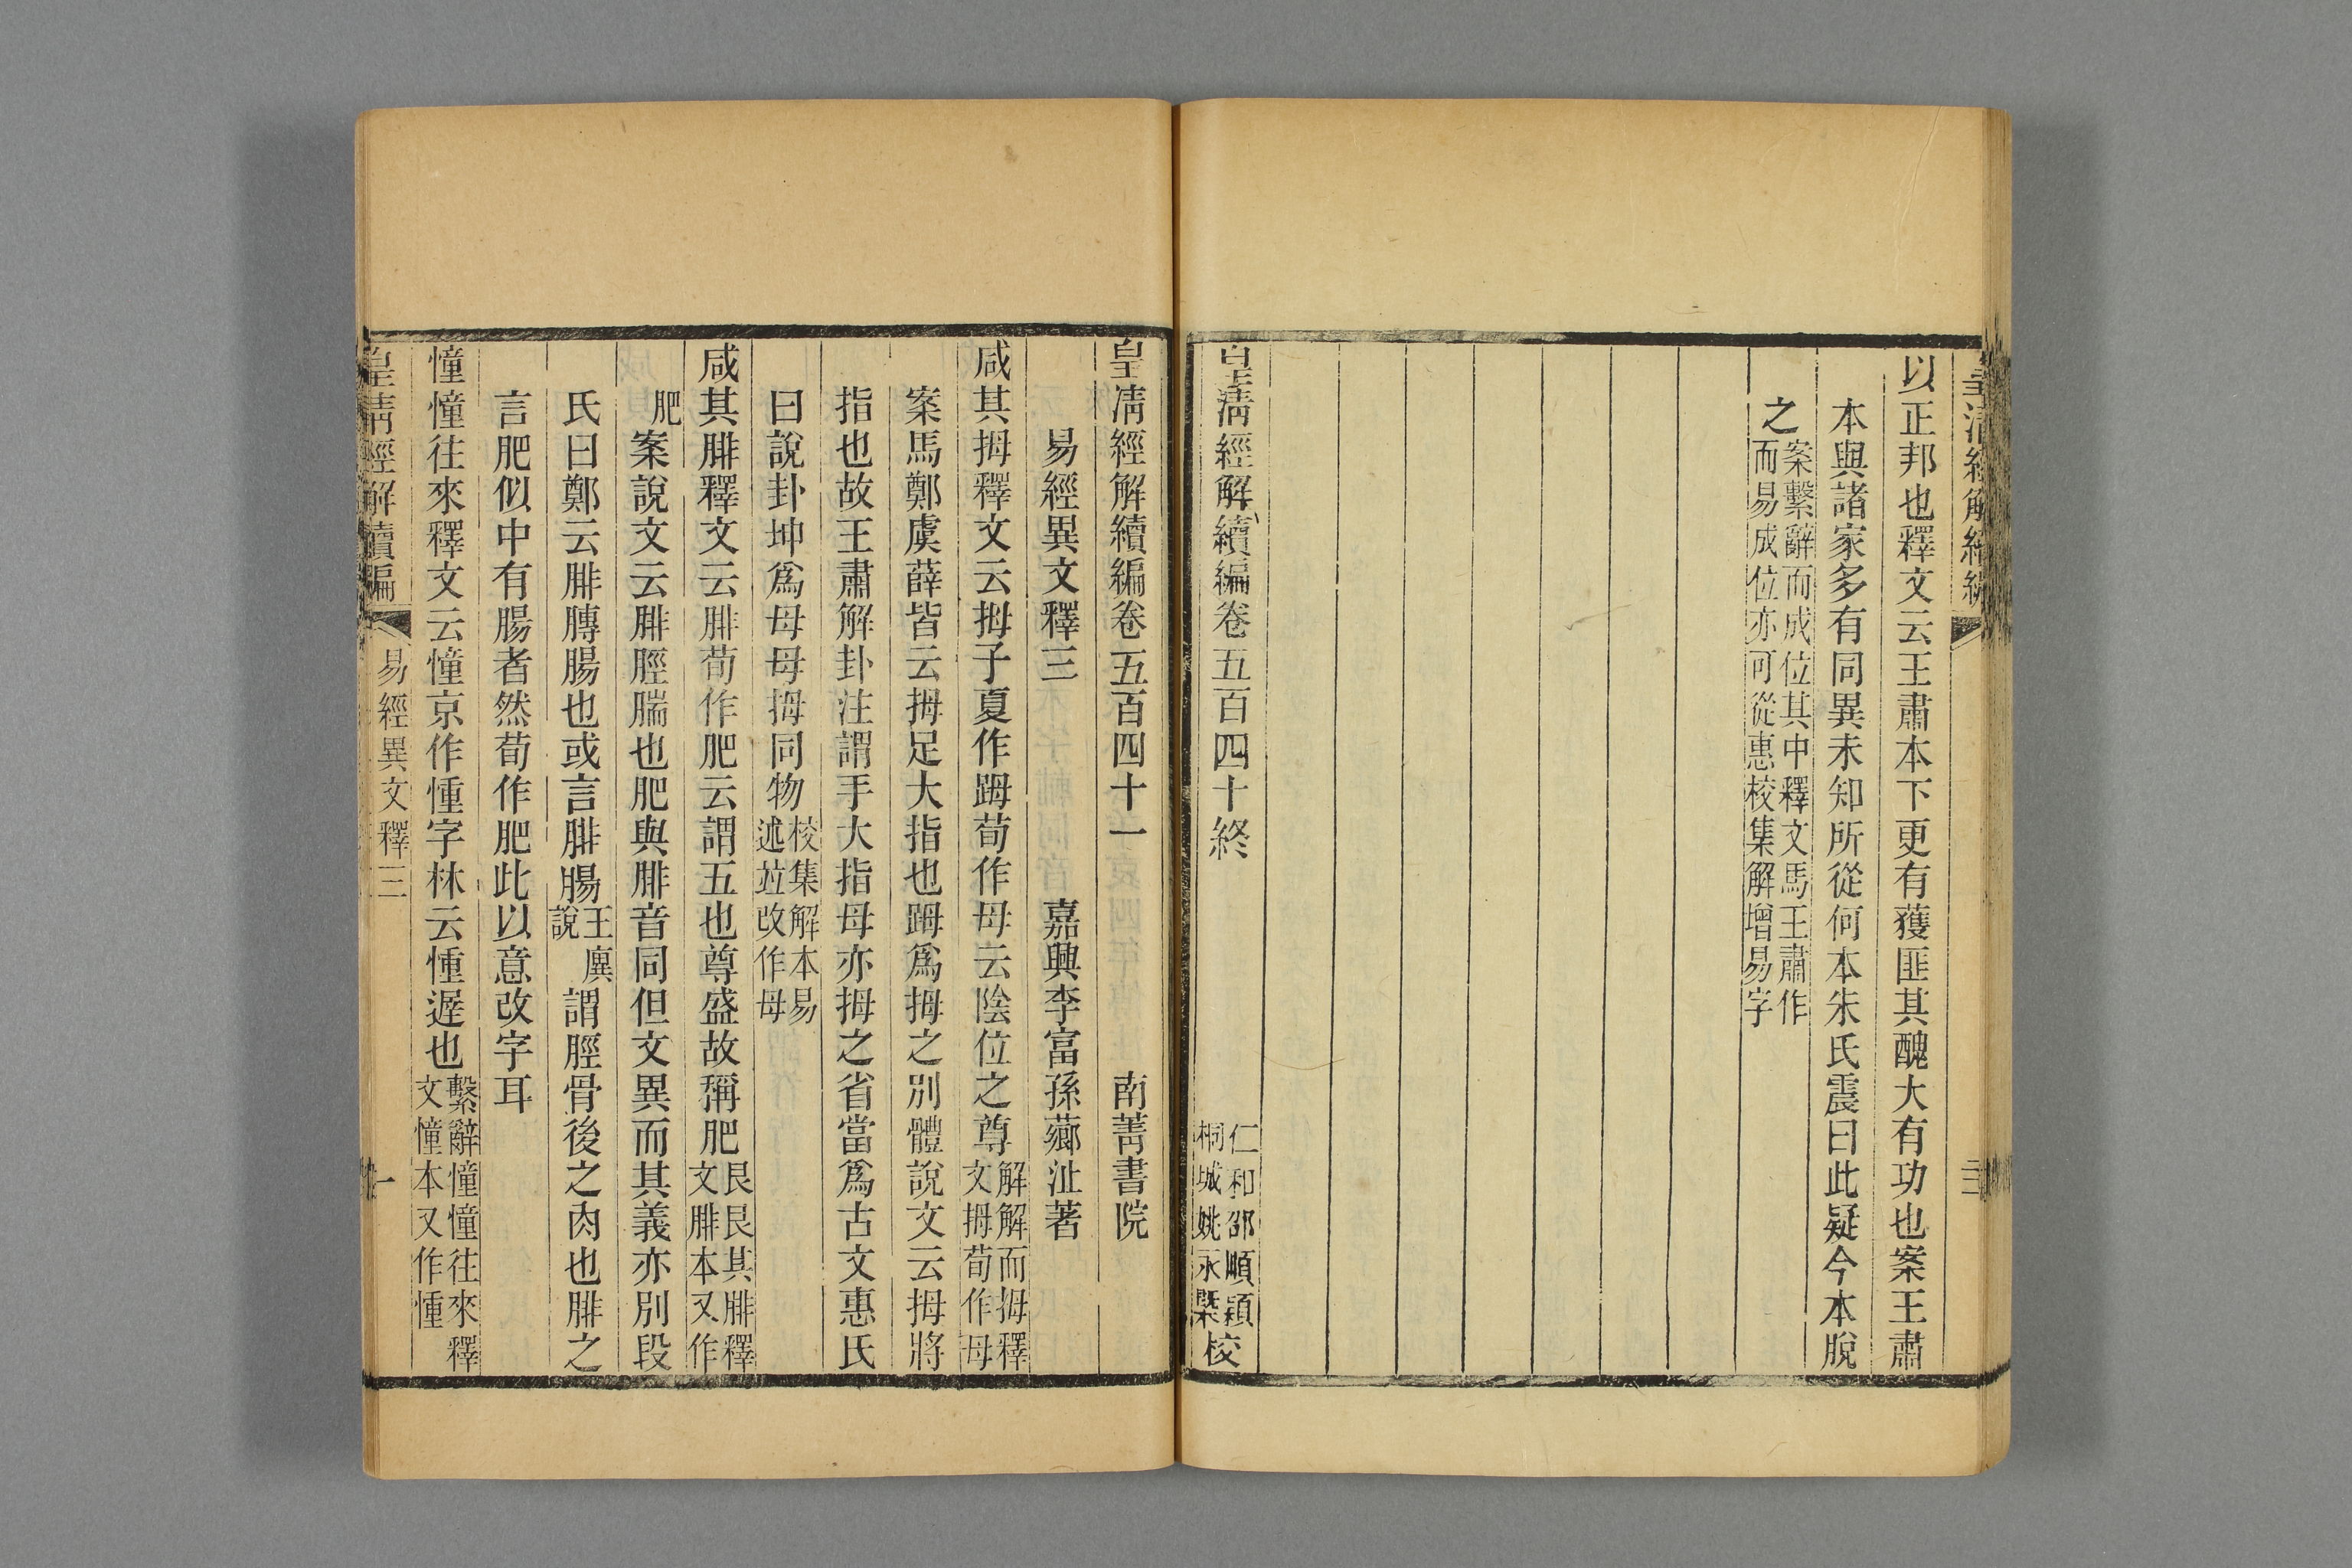 以正邦也釋文云王肅本下更有獲匪其醜大有功也案王肅
本與諸家多有同異未知所從何本朱氏震曰此疑今本脫
之案繫辭而成位其中釋文馬王肅作
而易成位亦可從惠校集解增易字
皇淸經解續編卷五百四十終
仁和邵順穎
桐城姚永㮣
校
皇淸經解續編卷五百四十一
南菁書院
易經異文釋三
嘉興李富孫薌沚著
咸其拇釋文云拇子夏作䟢荀作母云陰位之尊解解而拇釋
文拇荀作母
案馬鄭虞薛皆云拇足大指也䟢爲拇之別體說文云拇將
指也故王肅解卦注謂手大指母亦拇之省當爲古文惠氏
曰說卦坤爲母母拇同物校集解本易
述竝改作母
咸其腓釋文云腓荀作肥云謂五也尊盛故稱肥艮艮其腓釋
文腓本又作
肥
案說文云腓脛腨也肥與腓音同但文異而其義亦別段
氏曰鄭云腓膞腸也或言腓腸王廙
說謂脛骨後之肉也腓之
言肥似中有腸者然荀作肥此以意改字耳
憧憧往來釋文云憧京作㥁字林云㥁遲也繫辭憧憧往來釋
文憧本又作㥁
皇淸經解續編
易經異文釋三
一